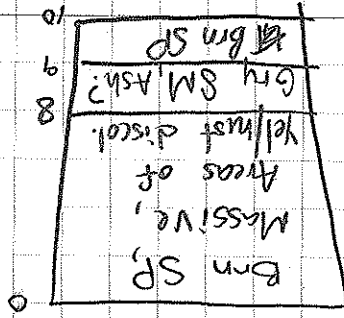 0
Brn SP,
Massive,
Areas of
Yel/rust discol.
8
Gry SM, Ash?
9
Brn SP
10